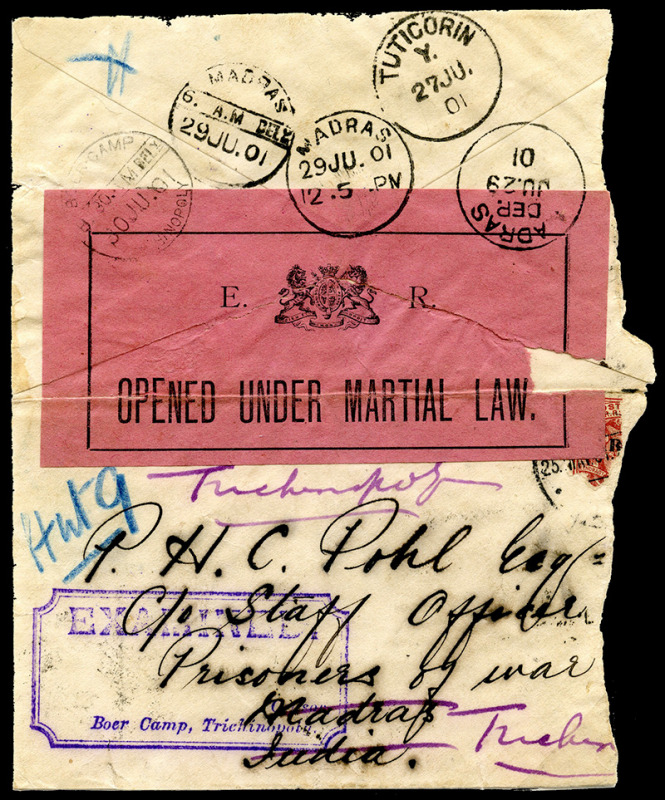 TUTICORIN
Y.
27JU.
01
MADRAS
6. A.M DELY
29JU.01
MADRAS
29JU.01
12.5 PM
ADRAS
DEP.
JU.29
01
CAMP
DELY
30JU.01
E. R.
OPENED UNDER MARTIAL LAW.
Trichinopoly
Hut 9
P. H. C. Pohl Esq
C/o Staff Officer
Prisoners of war
Madras
India.
EXAMINED
Boer Camp, Trichinopoly.
Trichin